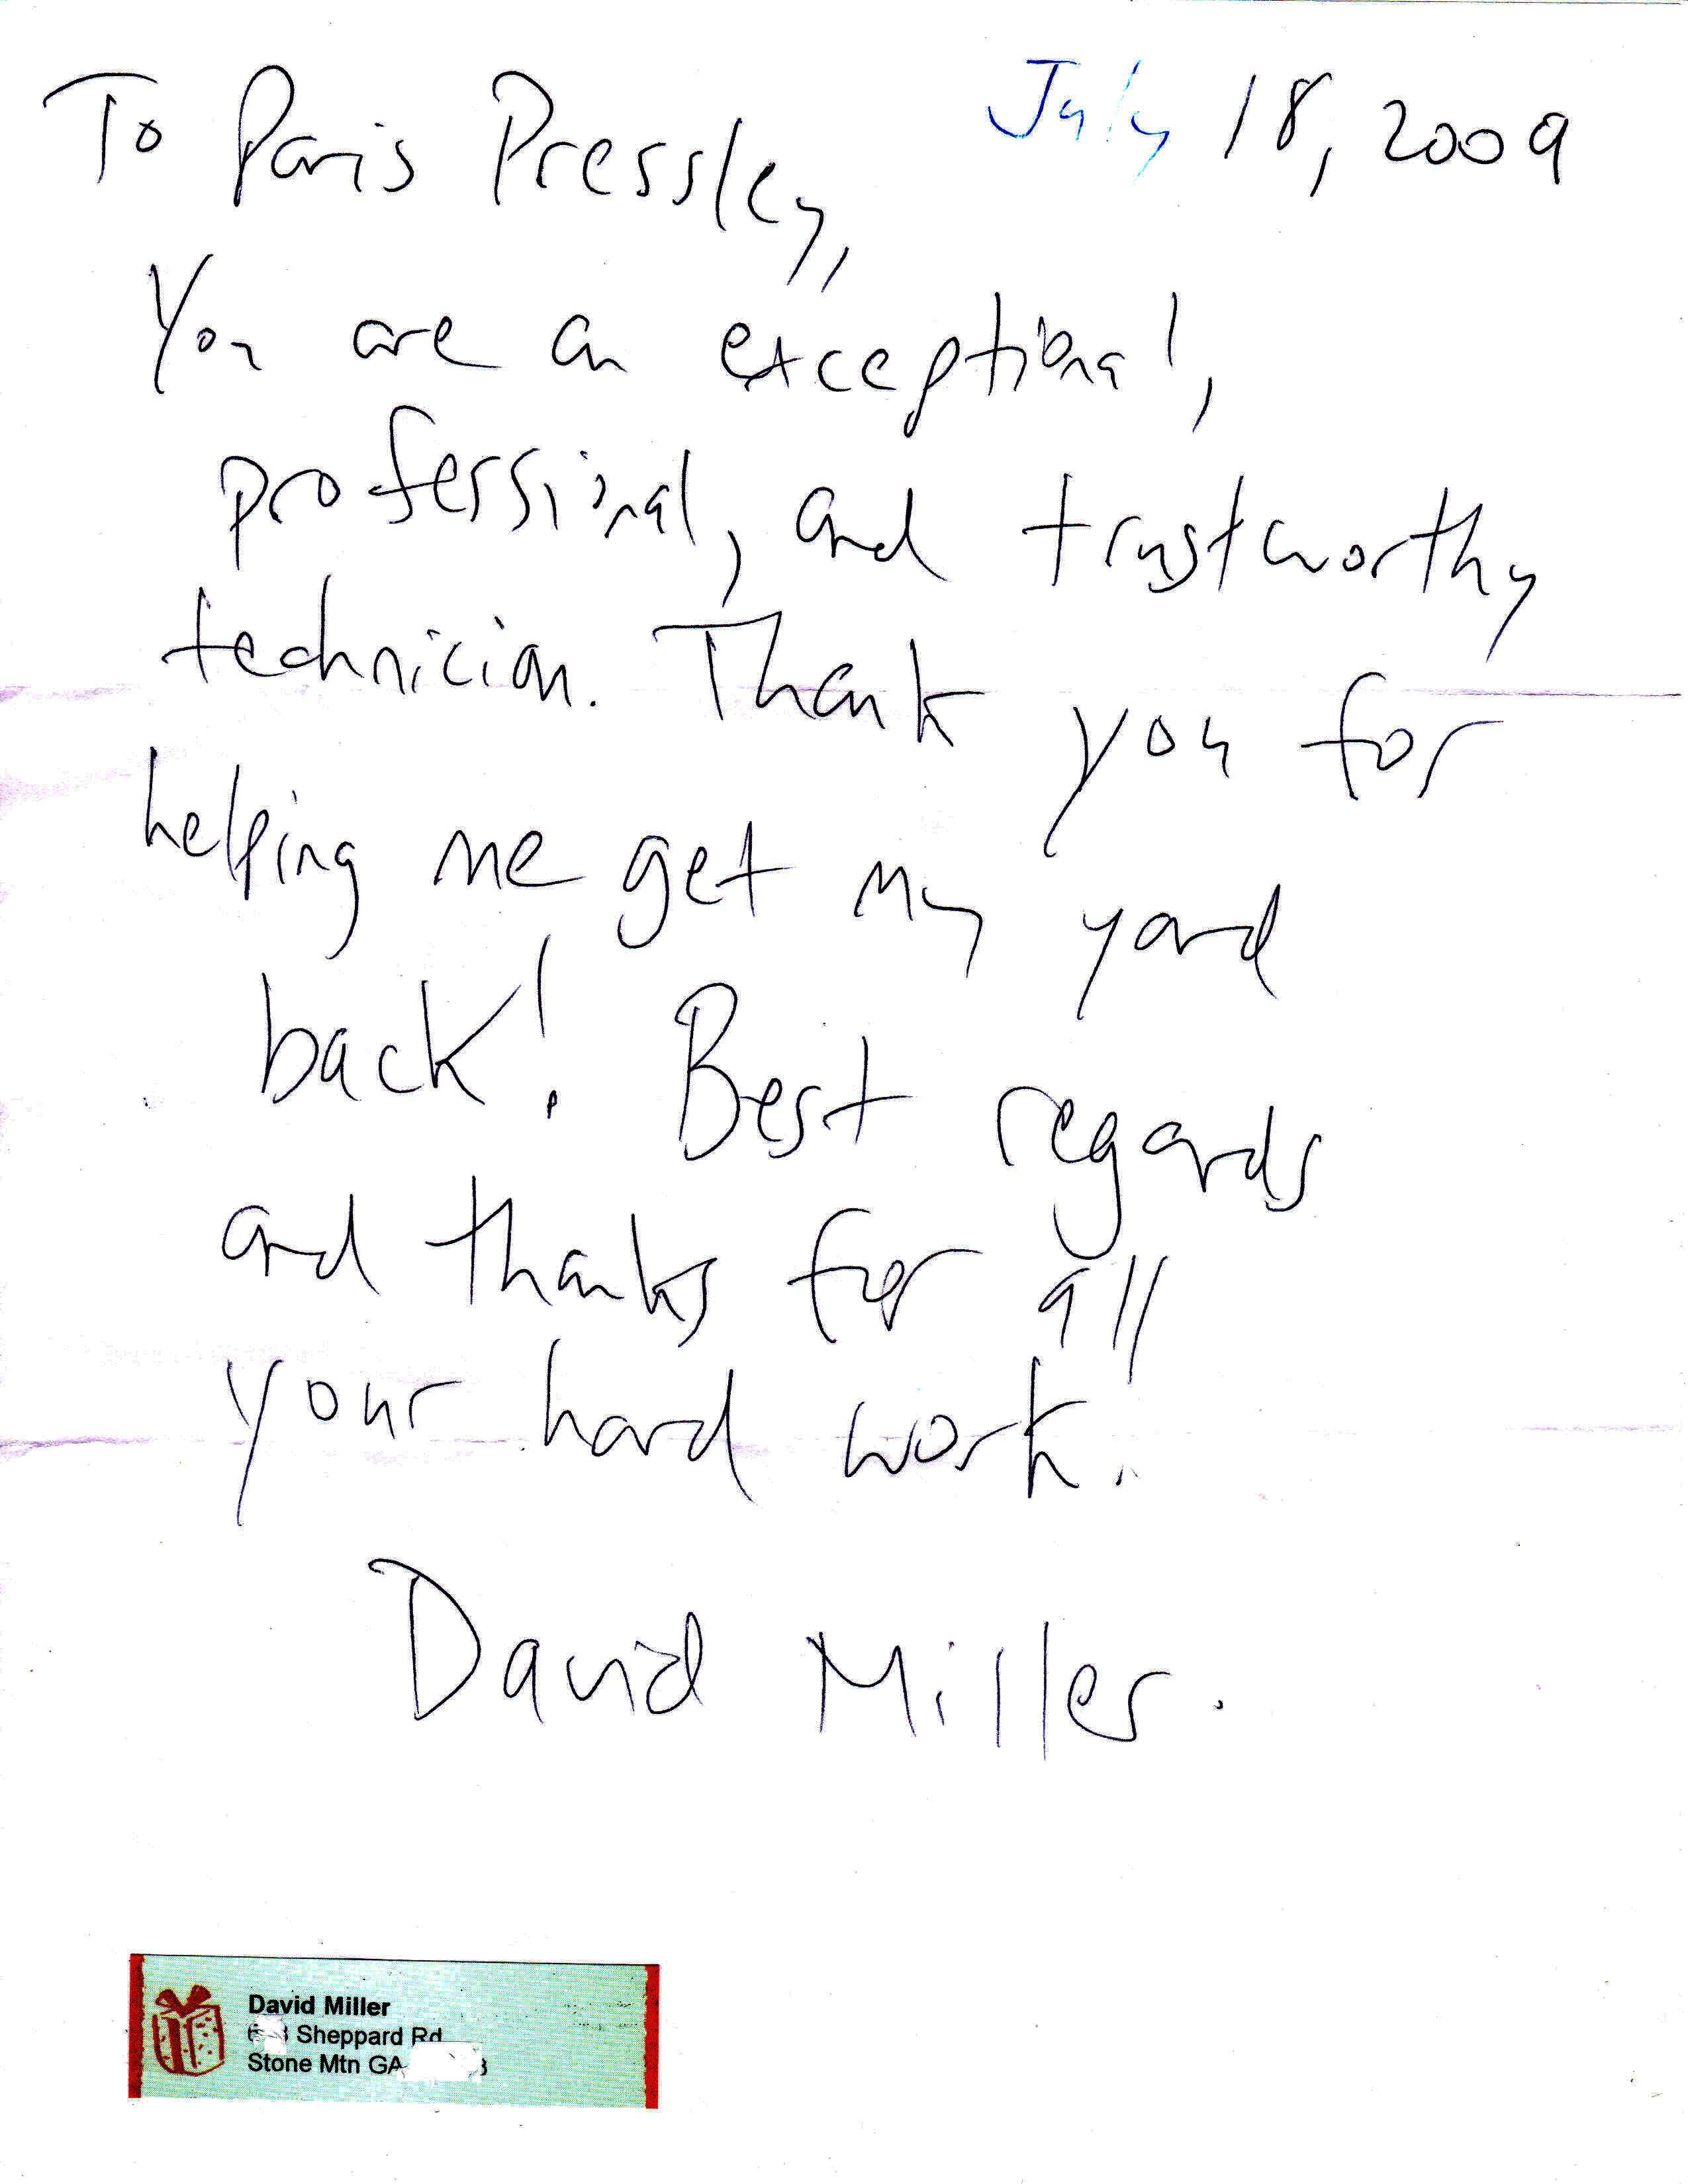 July 18, 2009
To Paris Pressley,
You are an exceptional,
professional, and trustworthy
technician. Thank you for
helping me get my yard
back! Best regards
and thanks for all
your hard work!
David Miller.
David Miller
Sheppard Rd
Stone Mtn GA